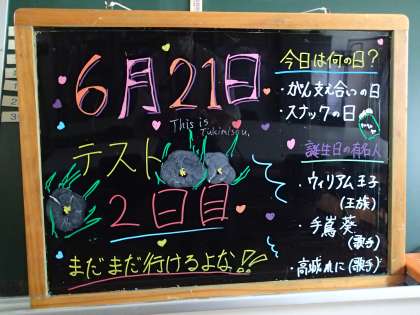 6月21日
This is
Tukimisou.
テスト
2日目
まだまだ行けるよな!!
今日は何の日?
・がん支え合いの日
・スナックの日
誕生日の有名人
・ウィリアム王子
(王族)
・手嶌葵
(歌手)
・高城れに(歌手)